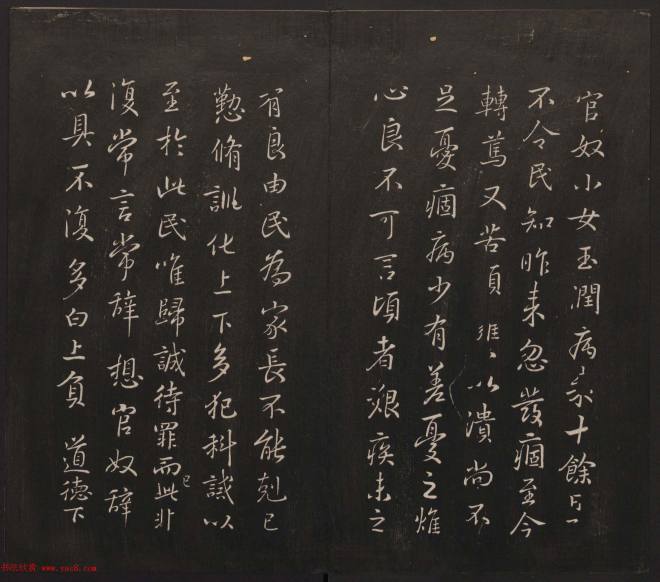 官奴小女玉潤病来十餘日了
不令民知昨来忽發痼至今
轉篤又苦頭以潰尚不
足憂痼病少有差憂之燋
心良不可言頃者艱疾未之
有良由民為家長不能尅己
懃脩訓化上下多犯科誡以
至於此民唯歸誠待罪而已此非
復常言常辭想官奴辭
以具不復多白上負 道德下
书法欣赏 www.yac8.com